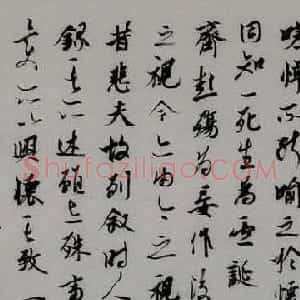 嗟悼不能喻之於懷
固知一死生為虛誕
齊彭殤為妄作後
之視今亦由今之視
昔悲夫故列敘時人
錄其所述雖世殊事
異所以興懷其致
Shufaziliao.com